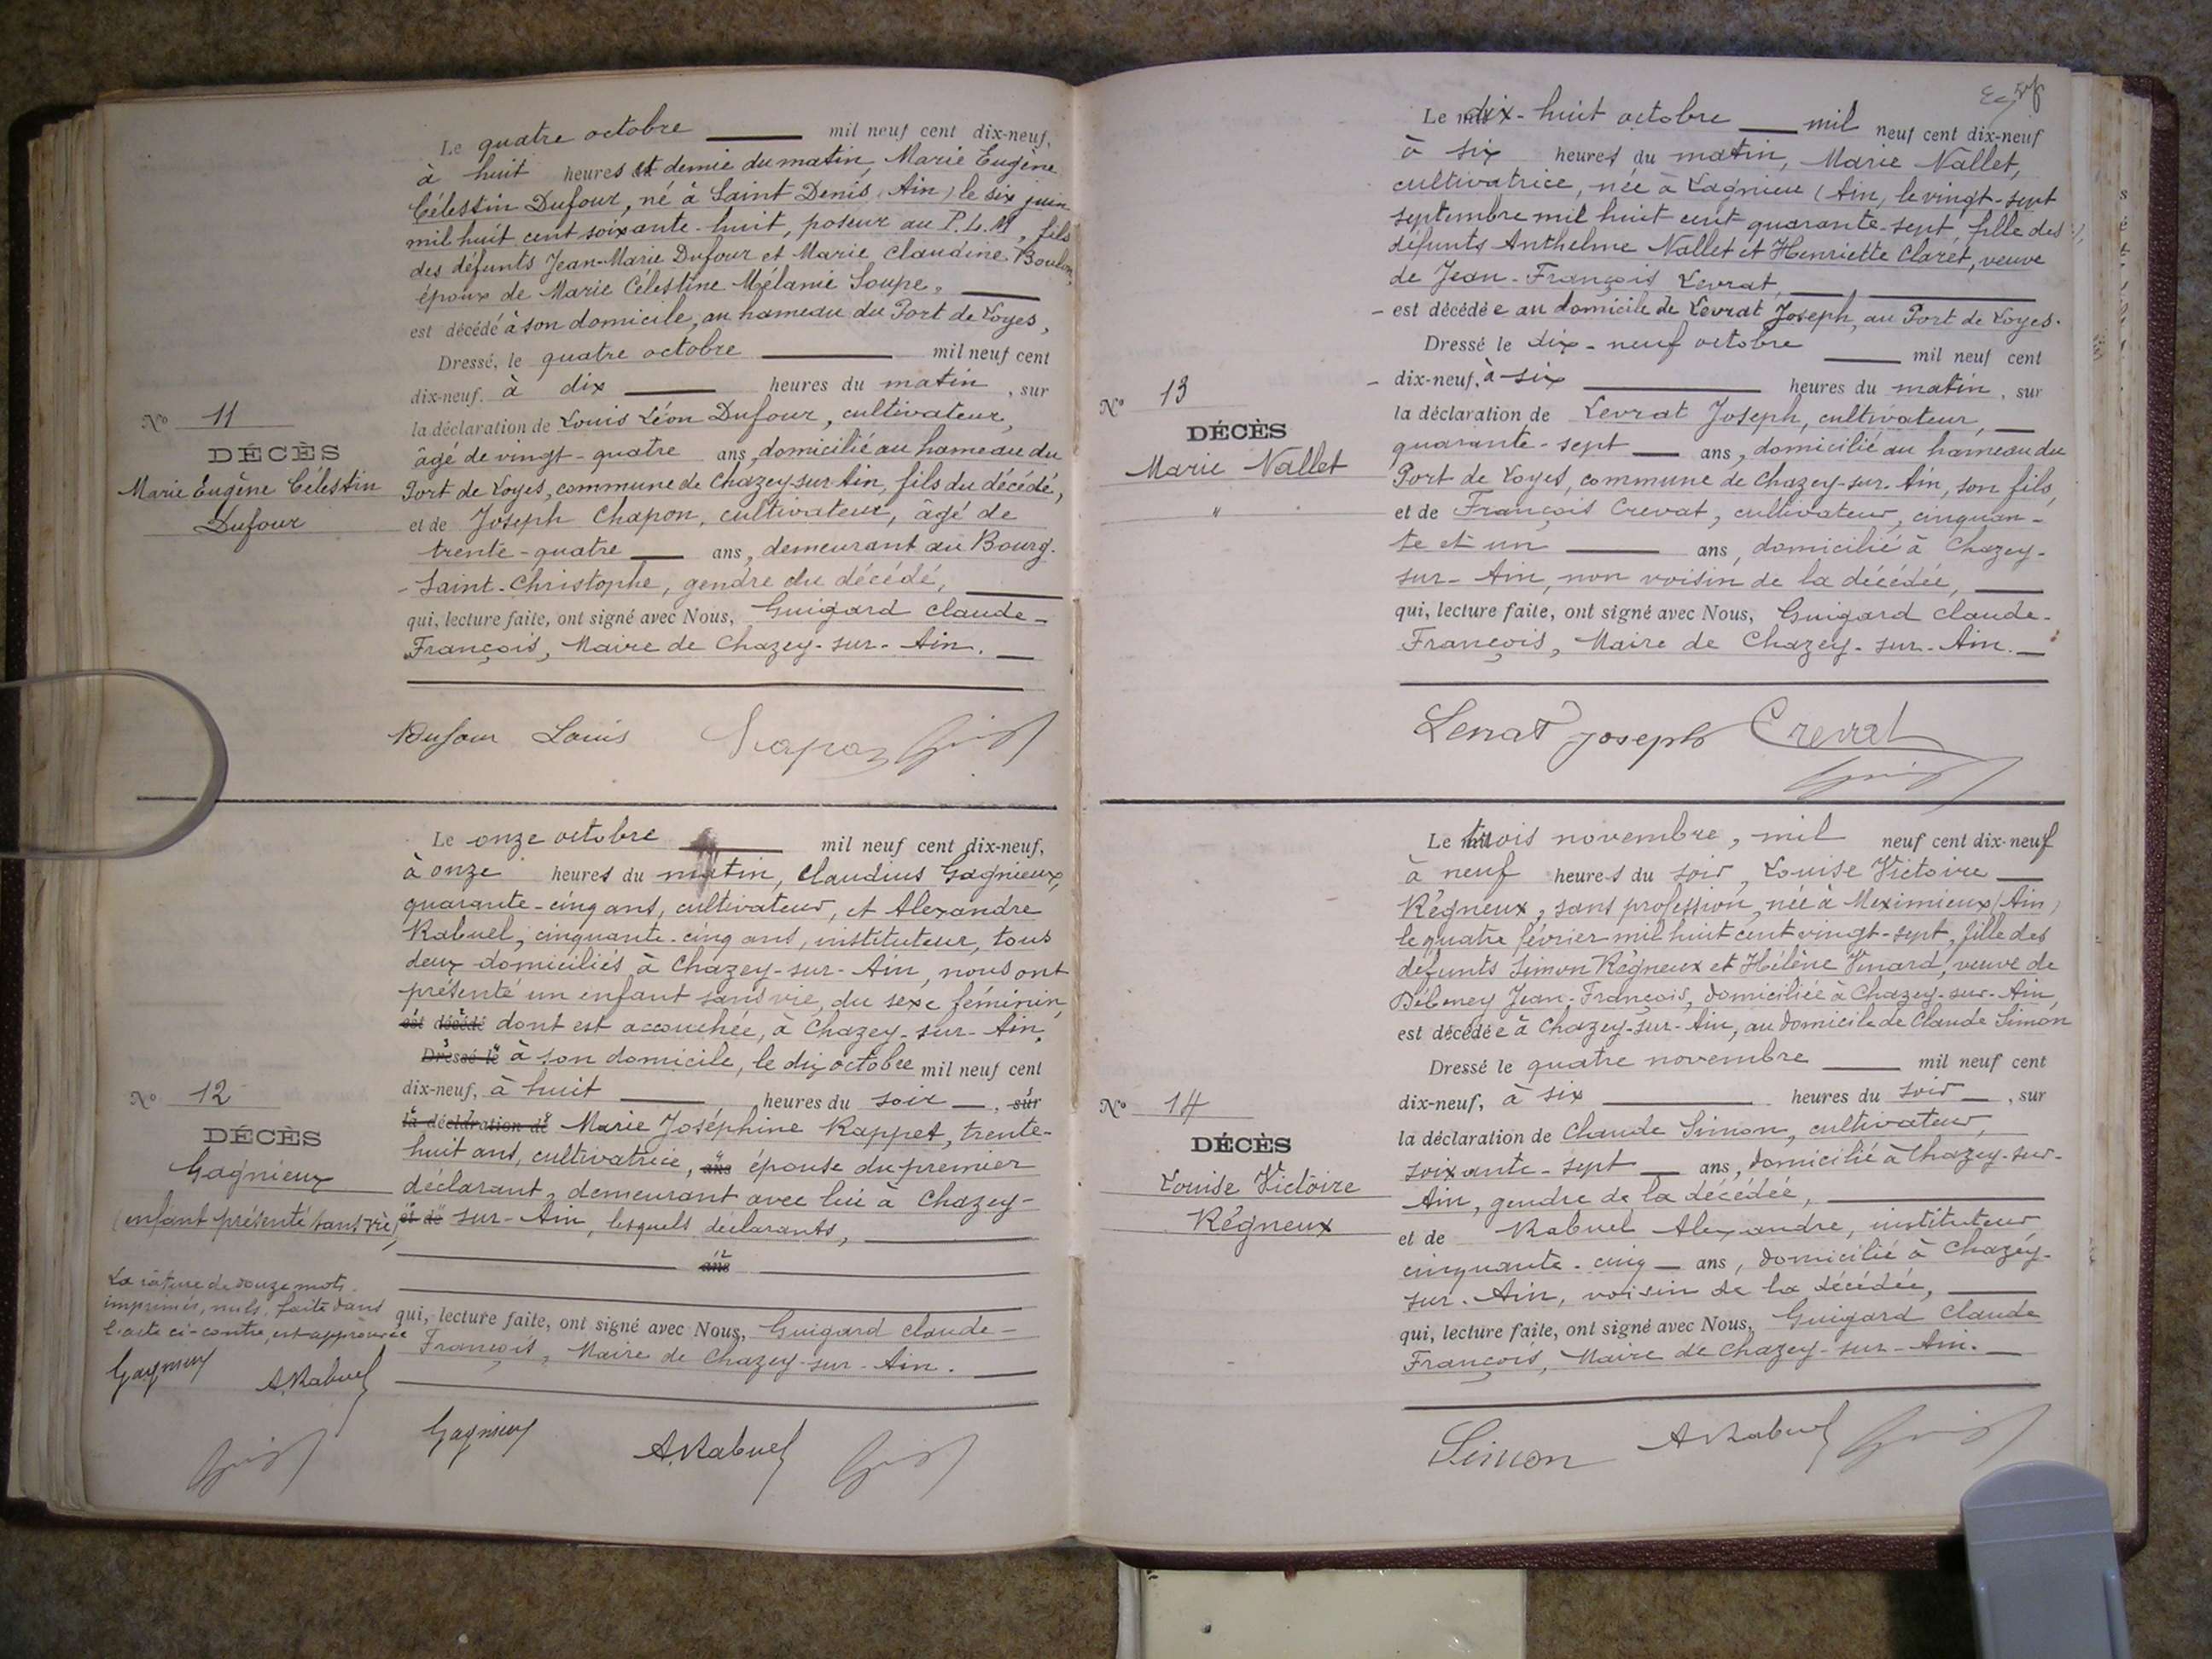 Le quatre octobre mil neuf cent dix-neuf,
à huit heures et demie du matin, Marie Eugène
Célestin Dufour, né à Saint Denis (Ain) le six juin
mil huit cent soixante-huit, poseur au P.L.M, fils
des défunts Jean-Marie Dufour et Marie Claudine
époux de Marie Célestine Mélanie Soupe,
est décédé à son domicile, au hameau du Port de Loyes,
Dressé, le quatre octobre mil neuf cent
dix-neuf, à dix heures du matin, sur
la déclaration de Louis Léon Dufour, cultivateur,
âgé de vingt-quatre ans, domicilié au hameau du
Port de Loyes, commune de Chazey-sur-Ain, fils du décédé,
et de Joseph Chapon, cultivateur, âgé de
trente-quatre ans, demeurant au Bourg-
-Saint-Christophe, gendre du décédé,
qui, lecture faite, ont signé avec Nous, Guigard Claude-
François, Maire de Chazey-sur-Ain.
N° 11
DÉCÈS
Marie Eugène Célestin
Dufour
Dufour Louis
Le onze octobre mil neuf cent dix-neuf,
à onze heures du matin, Claudius Gagnieux,
quarante-cinq ans, cultivateur, et Alexandre
Rabuel, cinquante-cinq ans, instituteur, tous
deux domiciliés à Chazey-sur-Ain, nous ont
présenté un enfant sans vie, du sexe féminin,
est décédé dont est accouchée, à Chazey-sur-Ain,
Dressé le à son domicile, le dix octobre mil neuf cent
dix-neuf, à huit heures du soir, sur
la déclaration de Marie Joséphine Rappet, trente-
huit ans, cultivatrice, ans épouse du premier
déclarant, demeurant avec lui à Chazey-
et de sur-Ain, lesquels déclarants,
ans
qui, lecture faite, ont signé avec Nous, Guigard Claude-
François, Maire de Chazey-sur-Ain.
N° 12
DÉCÈS
Gagnieux
(enfant présenté sans vie)
La rature de douze mots
imprimés, nuls, faite dans
l'acte ci-contre, est approuvée
Gagnieux A. Rabuel
Gagnieux A. Rabuel
Le dix-huit octobre mil neuf cent dix-neuf
à six heures du matin, Marie Nallet,
cultivatrice, née à Lagnieu (Ain) le vingt-sept
septembre mil huit cent quarante-sept fille des
défunts Anthelme Nallet et Henriette Claret, veuve
de Jean-François Levrat,
- est décédée au domicile de Levrat Joseph, au Port de Loyes.
Dressé le dix-neuf octobre mil neuf cent
- dix-neuf, à six heures du matin, sur
la déclaration de Levrat Joseph, cultivateur,
quarante-sept ans, domicilié au hameau du
Port de Loyes, commune de Chazey-sur-Ain, son fils,
et de François Crevat, cultivateur, cinquan-
te et un ans, domicilié à Chazey-
sur-Ain, non voisin de la décédée,
qui, lecture faite, ont signé avec Nous, Guigard Claude-
François, Maire de Chazey-sur-Ain.
N° 13
DÉCÈS
Marie Nallet
"
Levrat Joseph Crevat
Le trois novembre, mil neuf cent dix-neuf
à neuf heures du soir, Louise Victoire
Régneux, sans profession, née à Meximieux (Ain)
le quatre février mil huit cent vingt-sept, fille des
défunts Simon Régneux et Hélène Vinard, veuve de
Débeney Jean-François, domiciliée à Chazey-sur-Ain,
est décédée à Chazey-sur-Ain, au domicile de Claude Simon
Dressé le quatre novembre mil neuf cent
dix-neuf, à six heures du soir, sur
la déclaration de Claude Simon, cultivateur,
soixante-sept ans, domicilié à Chazey-sur-
Ain, gendre de la décédée,
et de Rabuel Alexandre, instituteur,
cinquante-cinq ans, domicilié à Chazey-
sur-Ain, voisin de la décédée,
qui, lecture faite, ont signé avec Nous, Guigard Claude
François, Maire de Chazey-sur-Ain.
N° 14
DÉCÈS
Louise Victoire
Régneux
Simon A. Rabuel